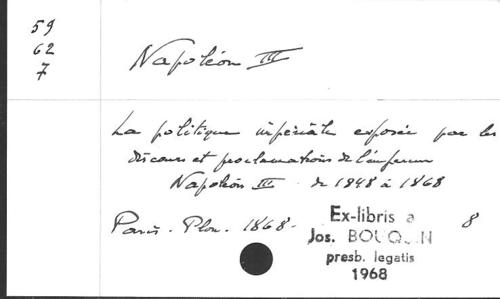 59
62
7
Napoléon III
La politique impériale exposée par les
discours et proclamations de l'empereur
Napoléon III de 1848 à 1868
Paris. Plon. 1868. 8
Ex-libris a
Jos. BOUQUIN
presb. legatis
1968